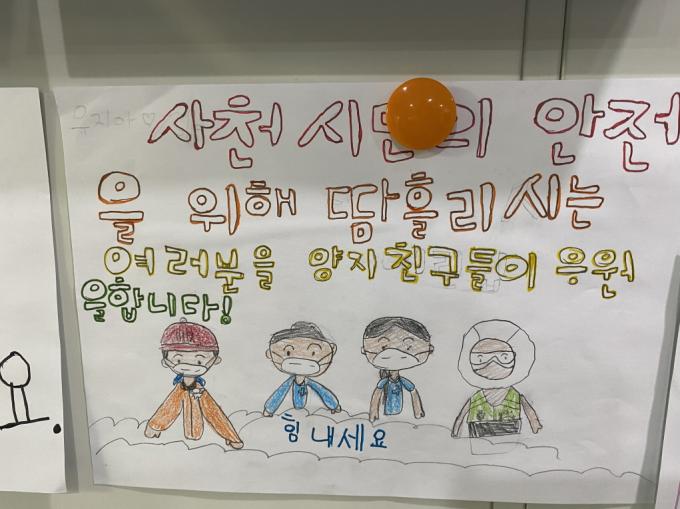 유지아♡
사천 시민의 안전
을 위해 땀흘리시는
여러분을 양지친구들이 응원
을합니다!
힘내세요